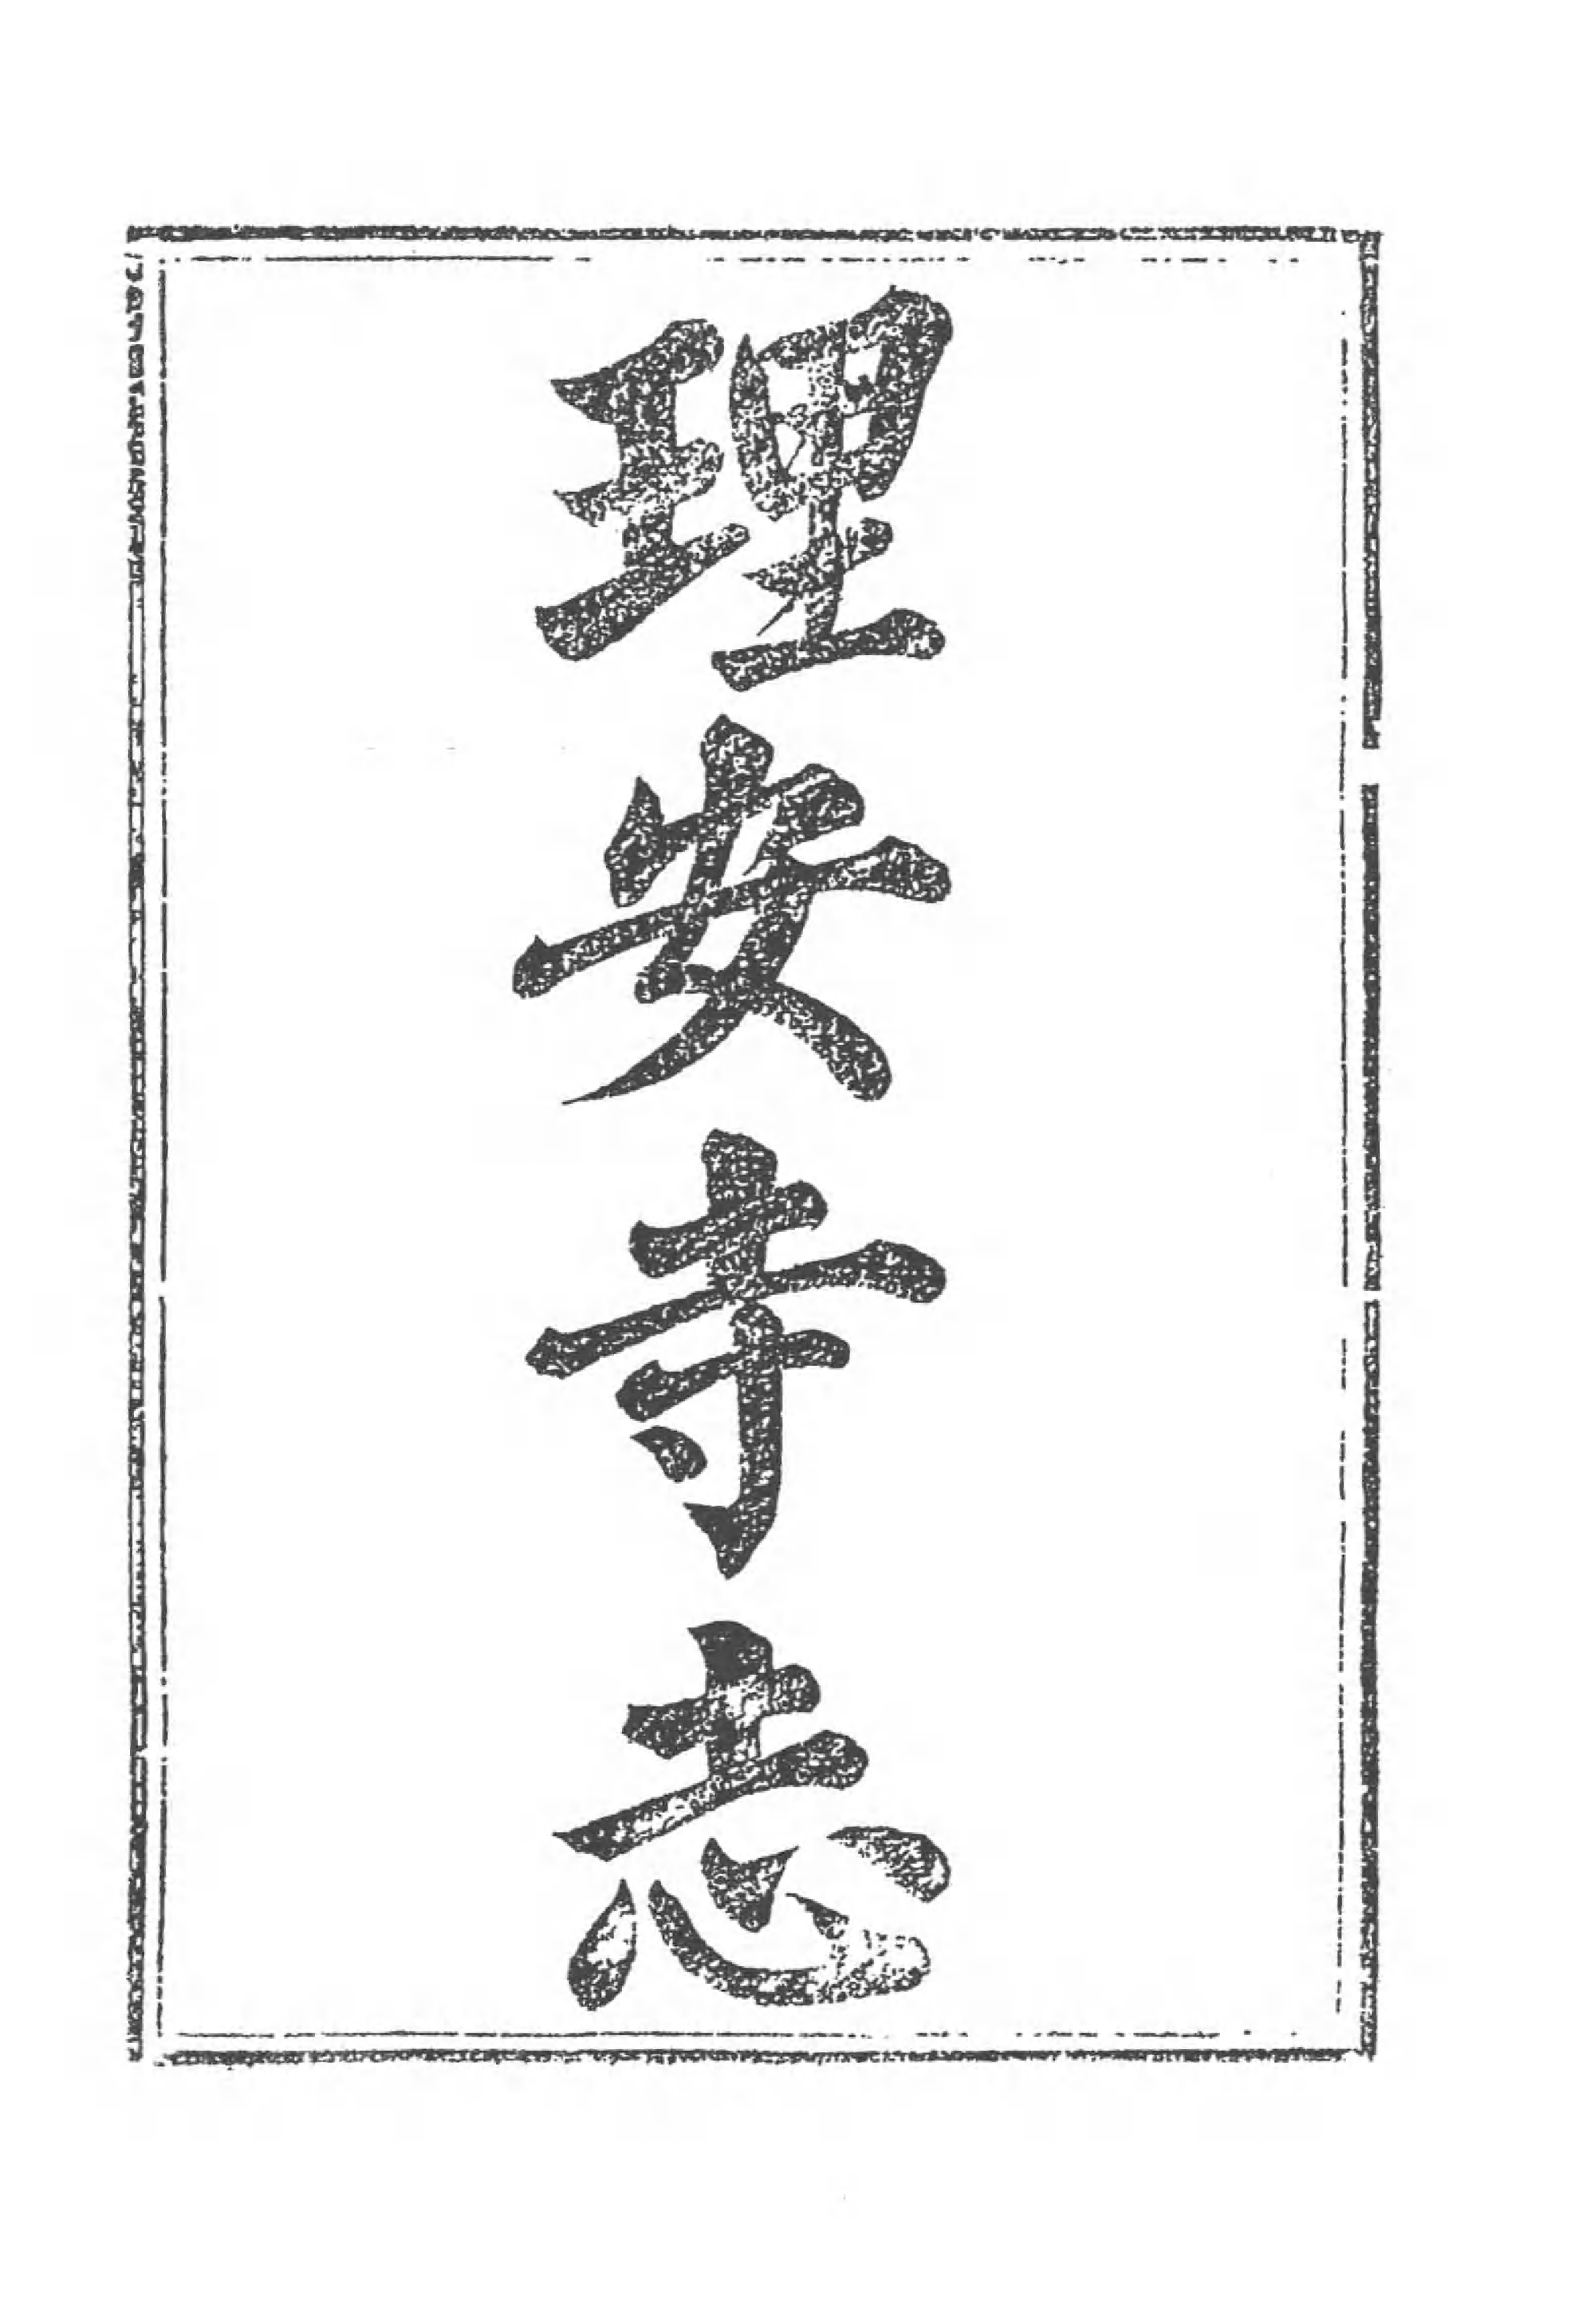 理安寺志